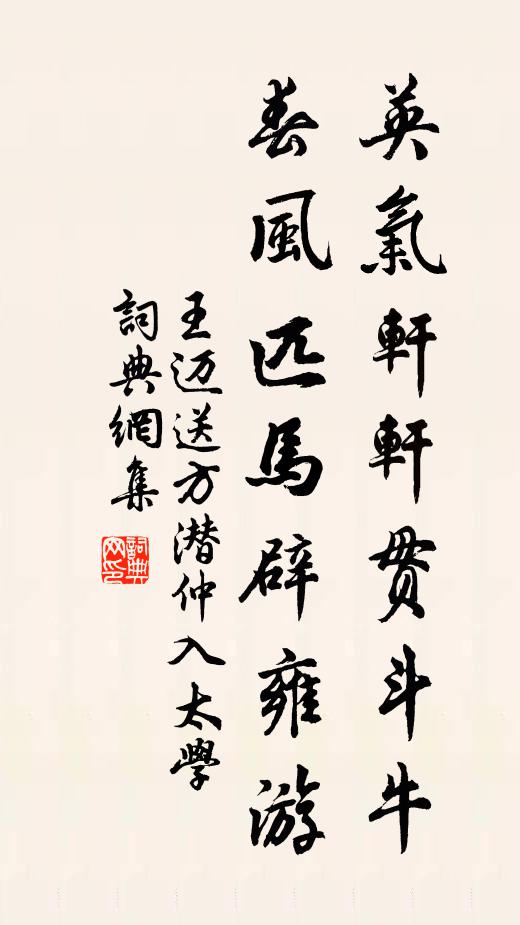 英氣軒軒貫斗牛
春風匹馬辟雍游
王迈送方潜仲入太學
詞典網集
詞典网印